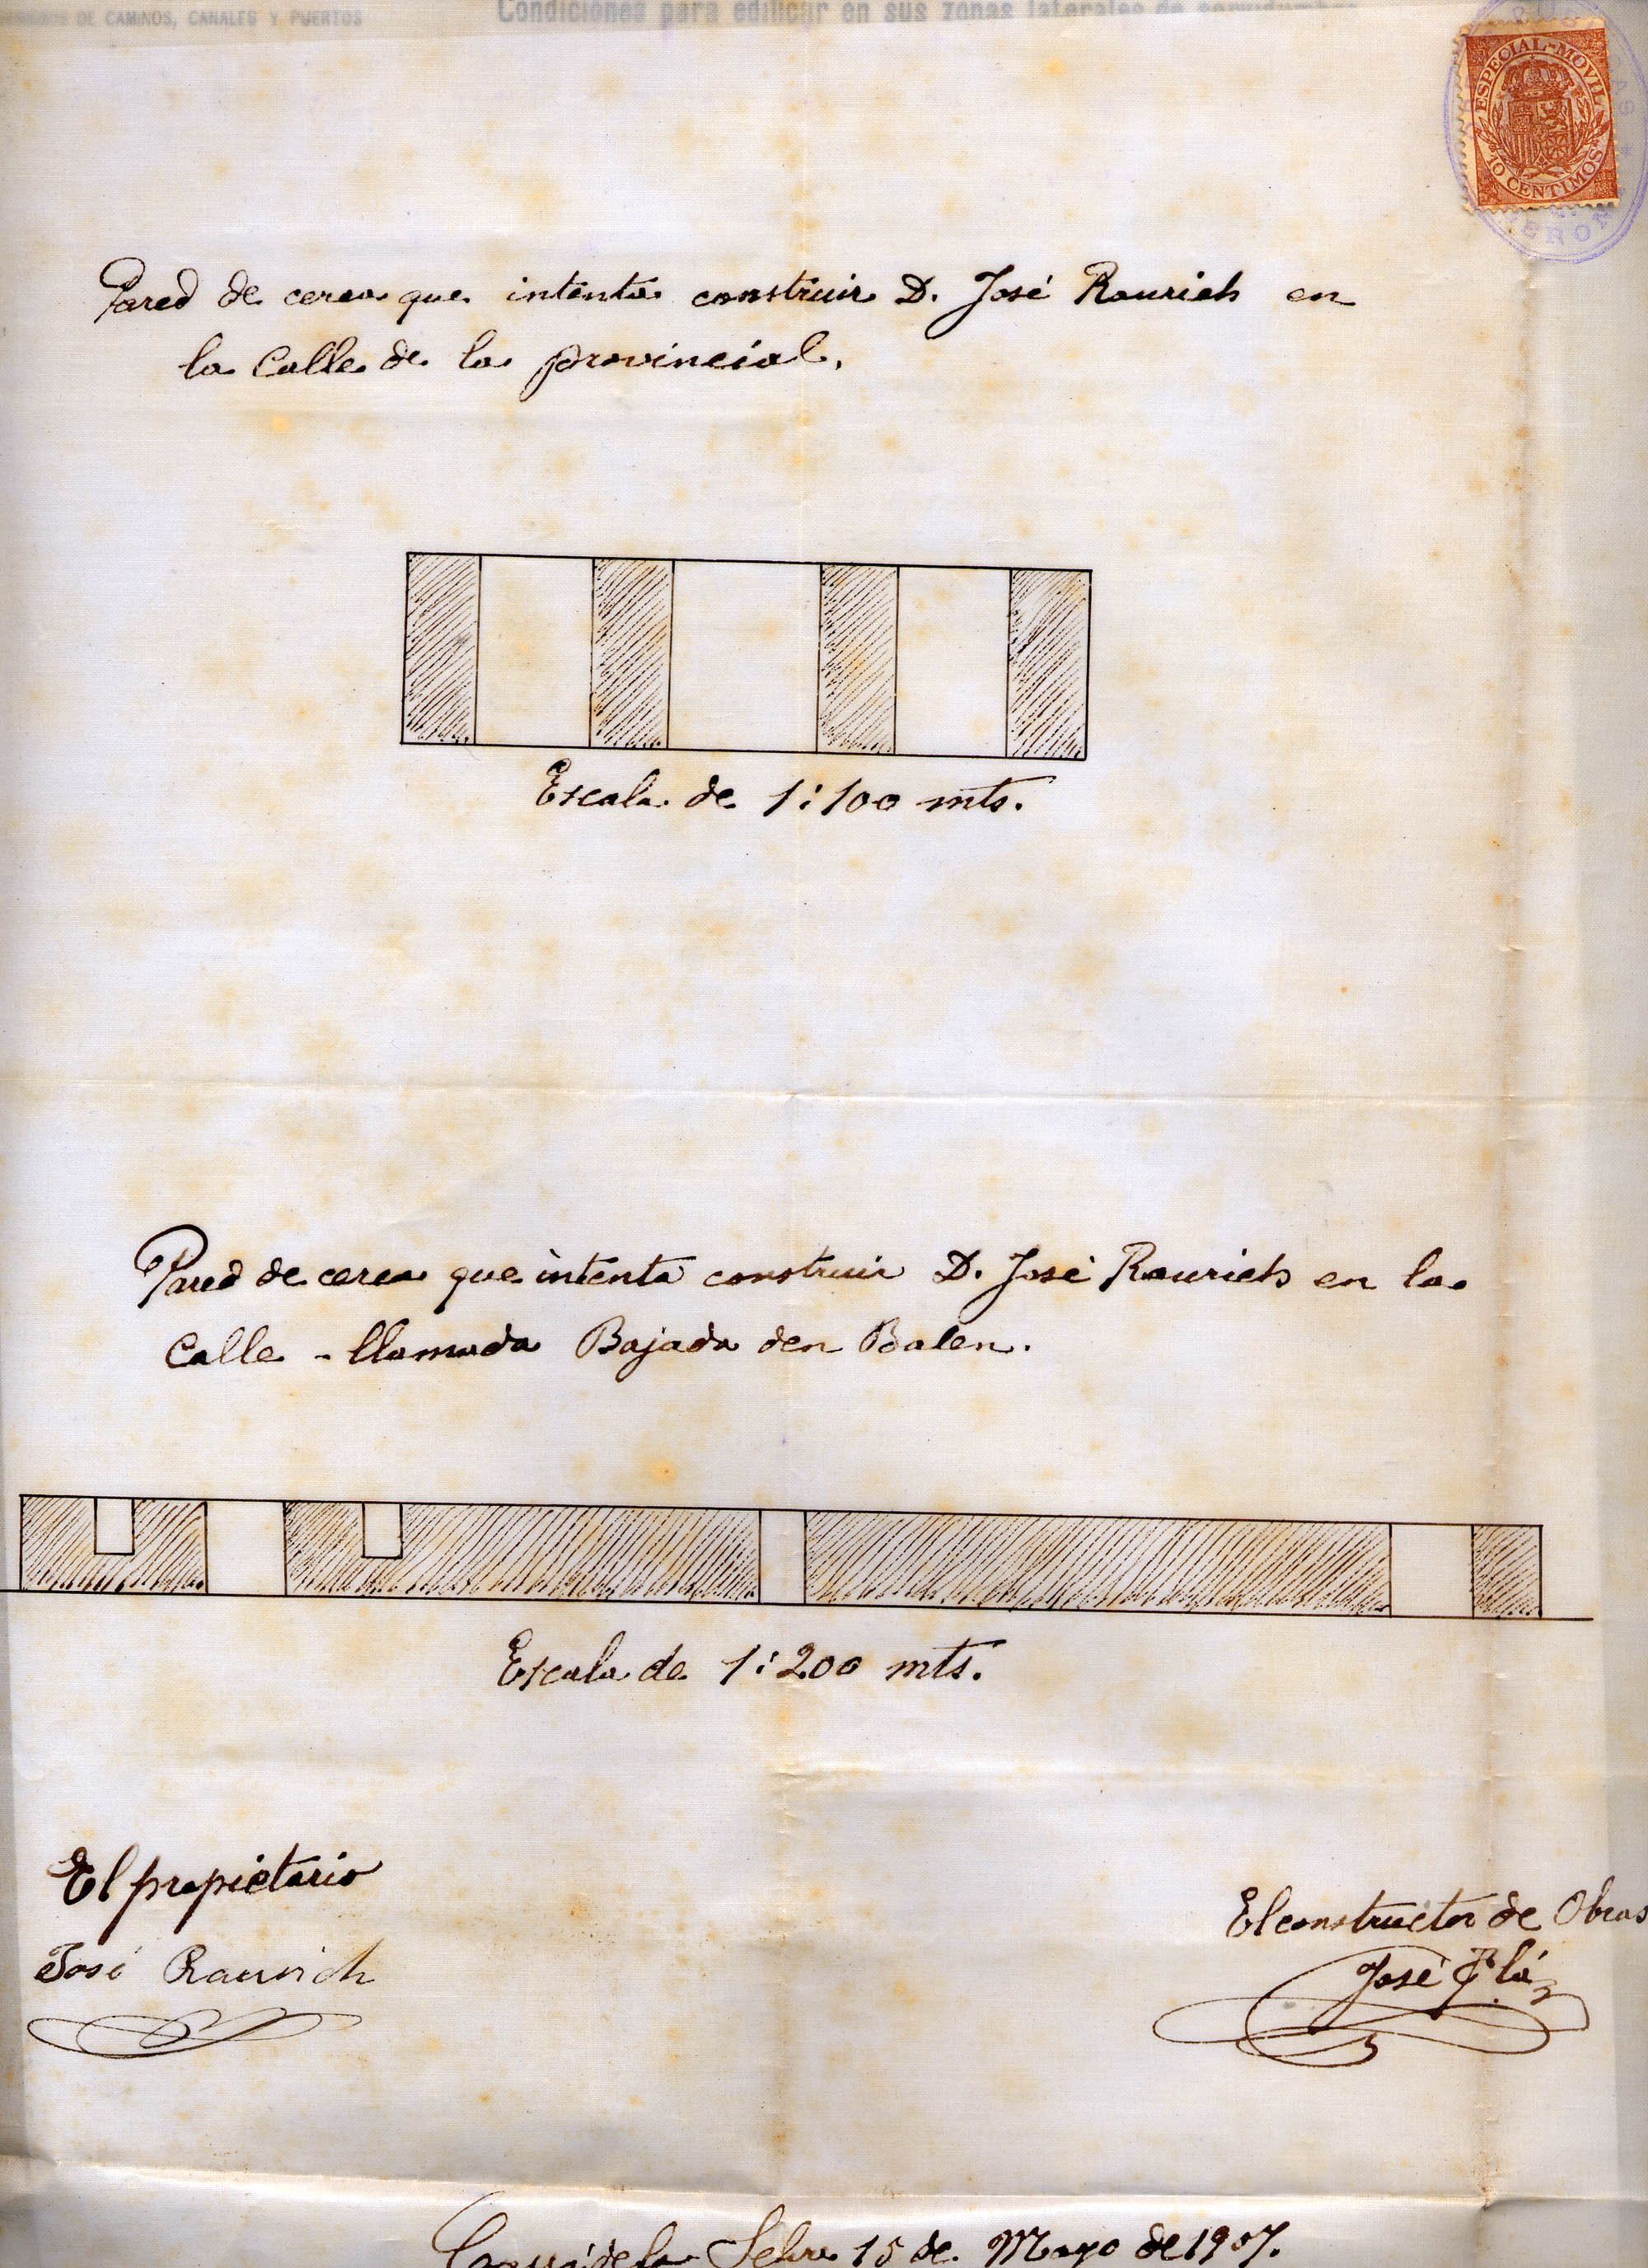 DE CAMINOS, CANALES Y PUERTOS
Condiciones para edificar en sus zonas laterales de servidumbre
ESPECIAL MOVIL
10 CENTIMOS
Pared de cerca que intenta construir D. José Raurich en
la Calle de la provincial.
Escala de 1:100 mts.
Pared de cerca que intenta construir D. José Raurich en la
Calle llamada Bajada den Balen.
Escala de 1:200 mts.
El propietario
José Raurich
El constructor de Obras
José Plá
de la Selva 15 de Mayo de 1907.